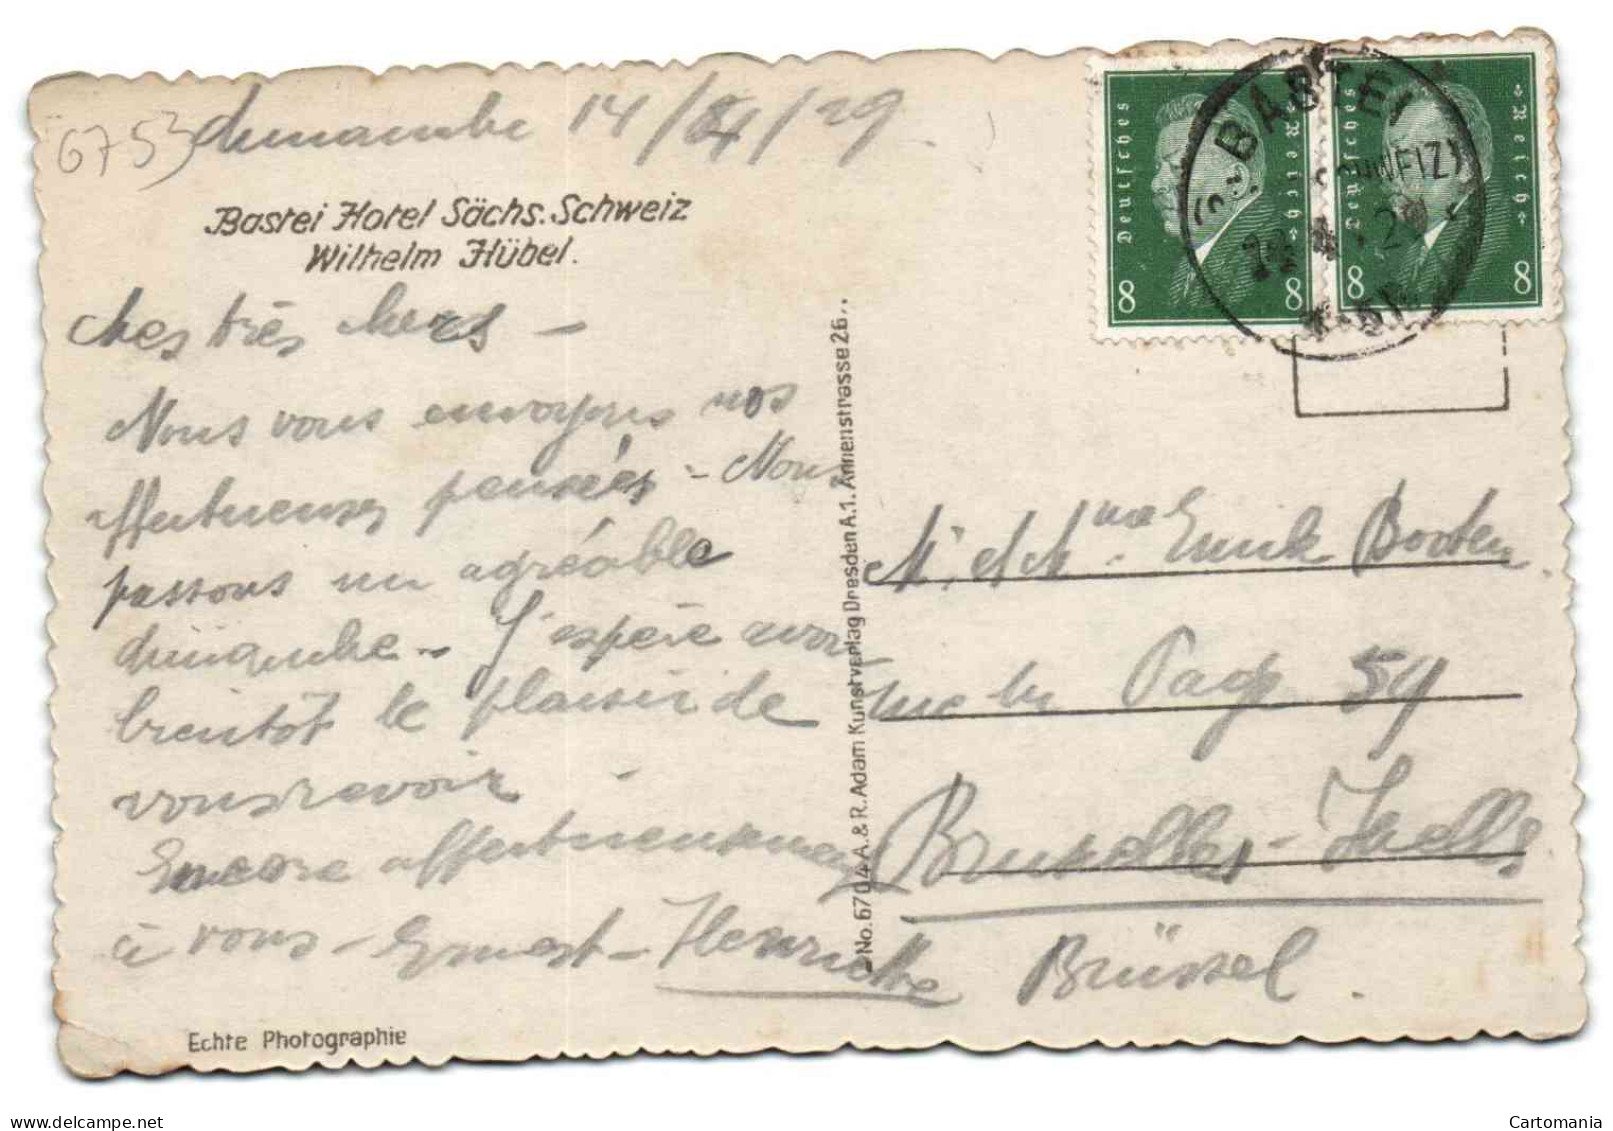 6753
dimanche 14/4/29
Bastei Hotel Sächs. Schweiz
Wilhelm Hübel.
Mes très chers -
Nous vous envoyons nos
affectueuses pensées - Nous
passons un agréable
dimanche - J'espère avoir
bientôt le plaisir de
vous revoir
Encore affectueusement
à vous - Ernest - Henriette
Echte Photographie
No. 6704 A. & R. Adam Kunstverlag Dresden A.1. Annenstrasse 26..
Deutsches Reich
8 8
Deutsches Reich
8 8
BASTEI
M. et Mme Emile
rue du Page 59
Bruxelles - Ixelles
Brüssel.
www.delcampe.net
Cartomania